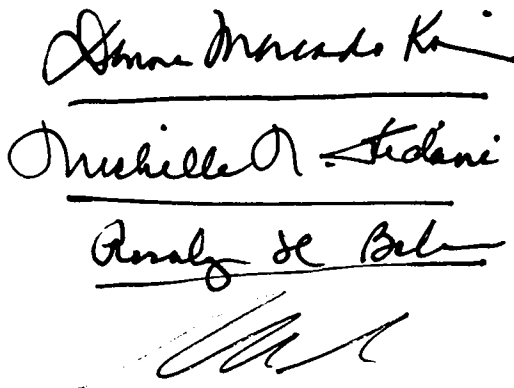 Donna Mercado Kim
Michelle N. Kidani
Rosalyn H Baker